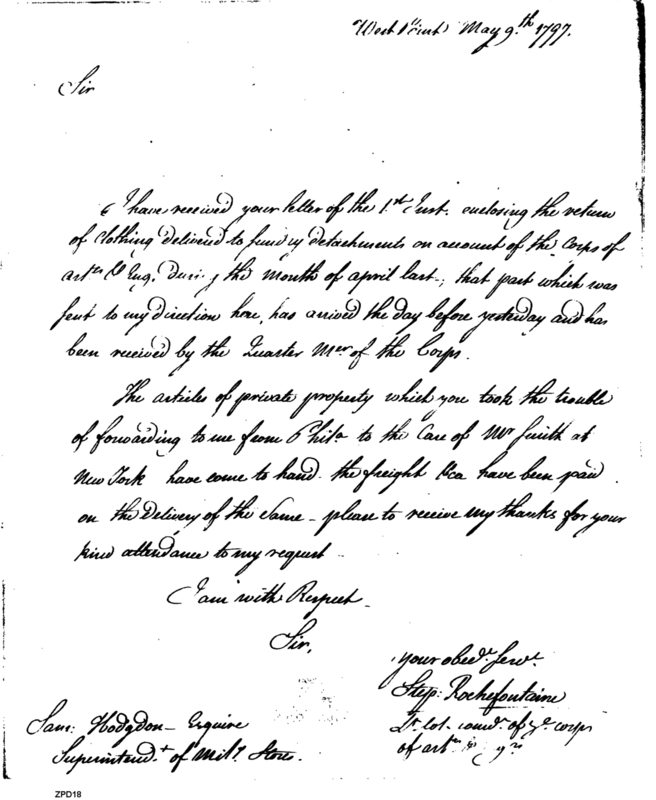 West Point May 9.th 1797.
Sir
I have received your letter of the 1.st Inst. enclosing the return
of Clothing Delivered to sundry detachements on account of the Corps of
art.rs & Eng. During the Month of april last; that part which was
sent to my direction here, has arrived the day before yesterday and has
been received by the Quarter Mer of the Corps.
The articles of private property which you took the trouble
of forwarding to me from Phila to the Care of Mr Smith at
New York have come to hand. the freight &ca have been paid
on the Delivery of the Same – please to receive my thanks for your
kind attendance to my request
I am with Respect
Sir,
your obed.t Serv.t
Step: Rochefontaine
Lt. Col. comd.t of ye corps
of art
Sam: Hodgdon – Esquire
Superintend.t of Mil.y Stores.
ZPD18